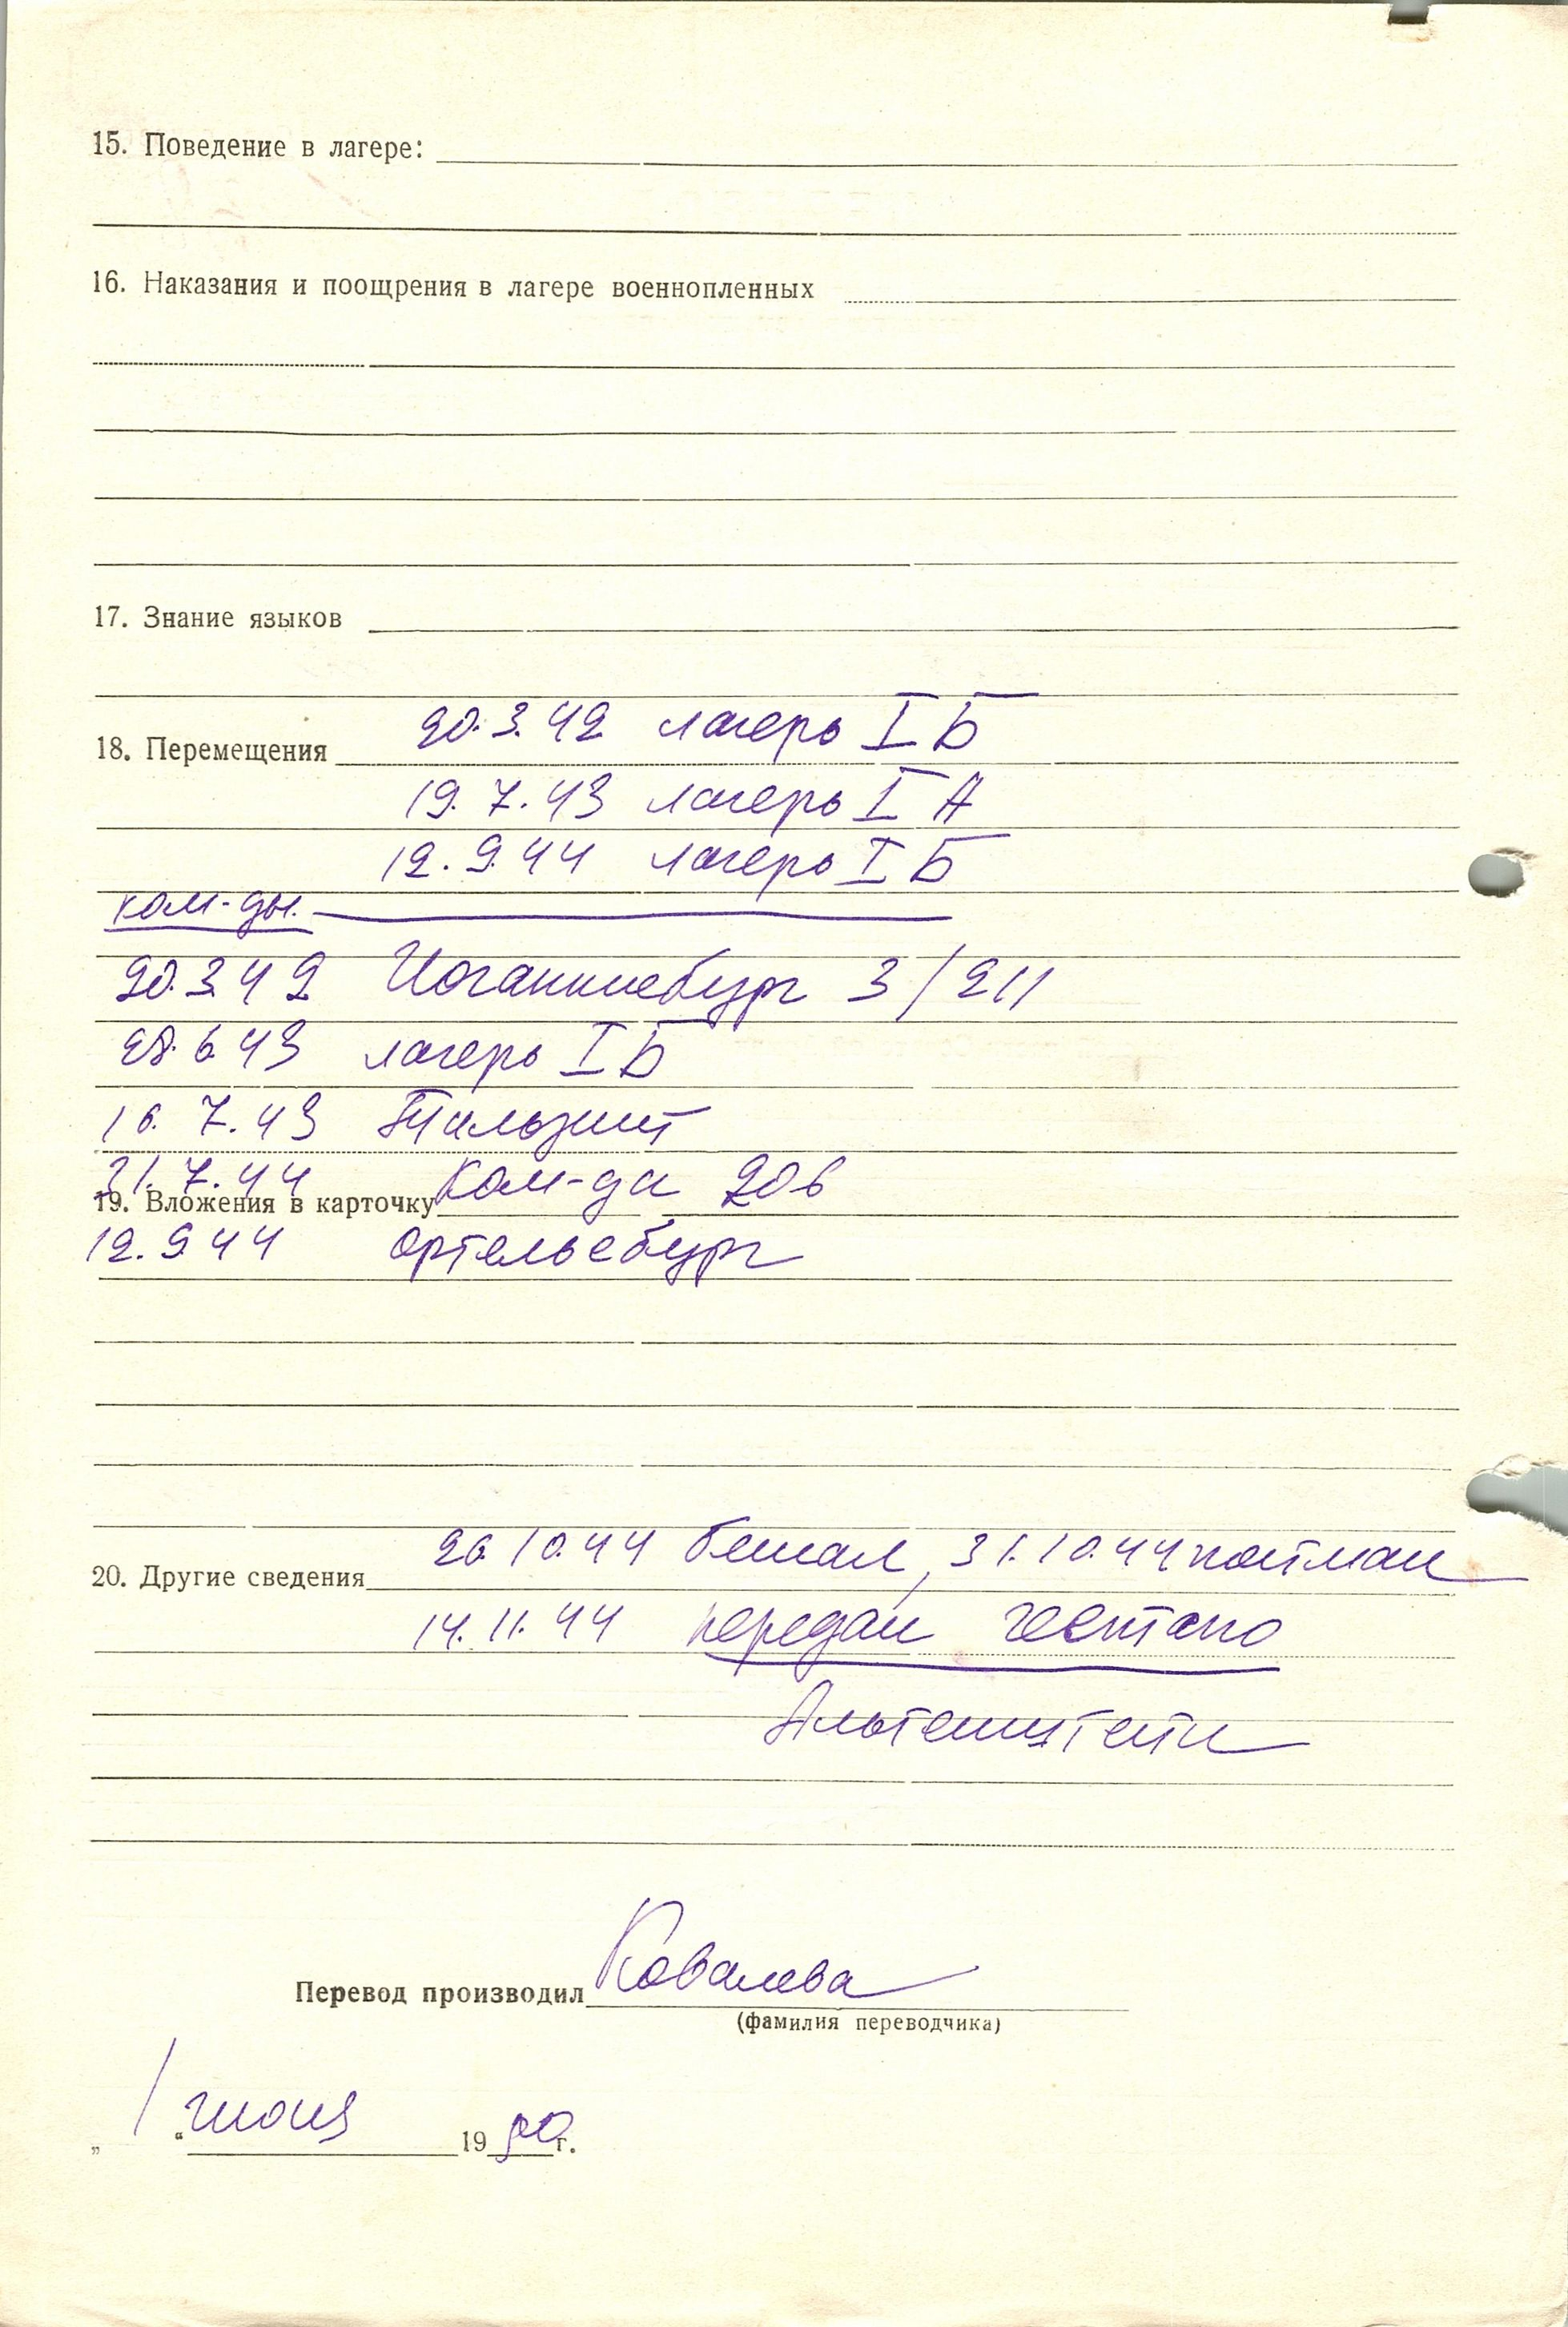 15. Поведение в лагере:
16. Наказания и поощрения в лагере военнопленных
17. Знание языков
18. Перемещения 20.3.42 лагерь I Б
19.7.43 лагерь I А
12.9.44 лагерь I Б
ком-ды.
20.3.42 Иоганнисбург 3/211
28.6.43 лагерь I Б
16.7.43 Тильзит
31.7.44 Ком-да 206
19. Вложения в карточку
12.9.44 Ортельсбург
20. Другие сведения 26.10.44 бежал, 31.10.44 пойман
14.11.44 передан гестапо
Альтенштейн
Перевод производил Ковалева
(фамилия переводчика)
„ 1 “ июня 19 г.